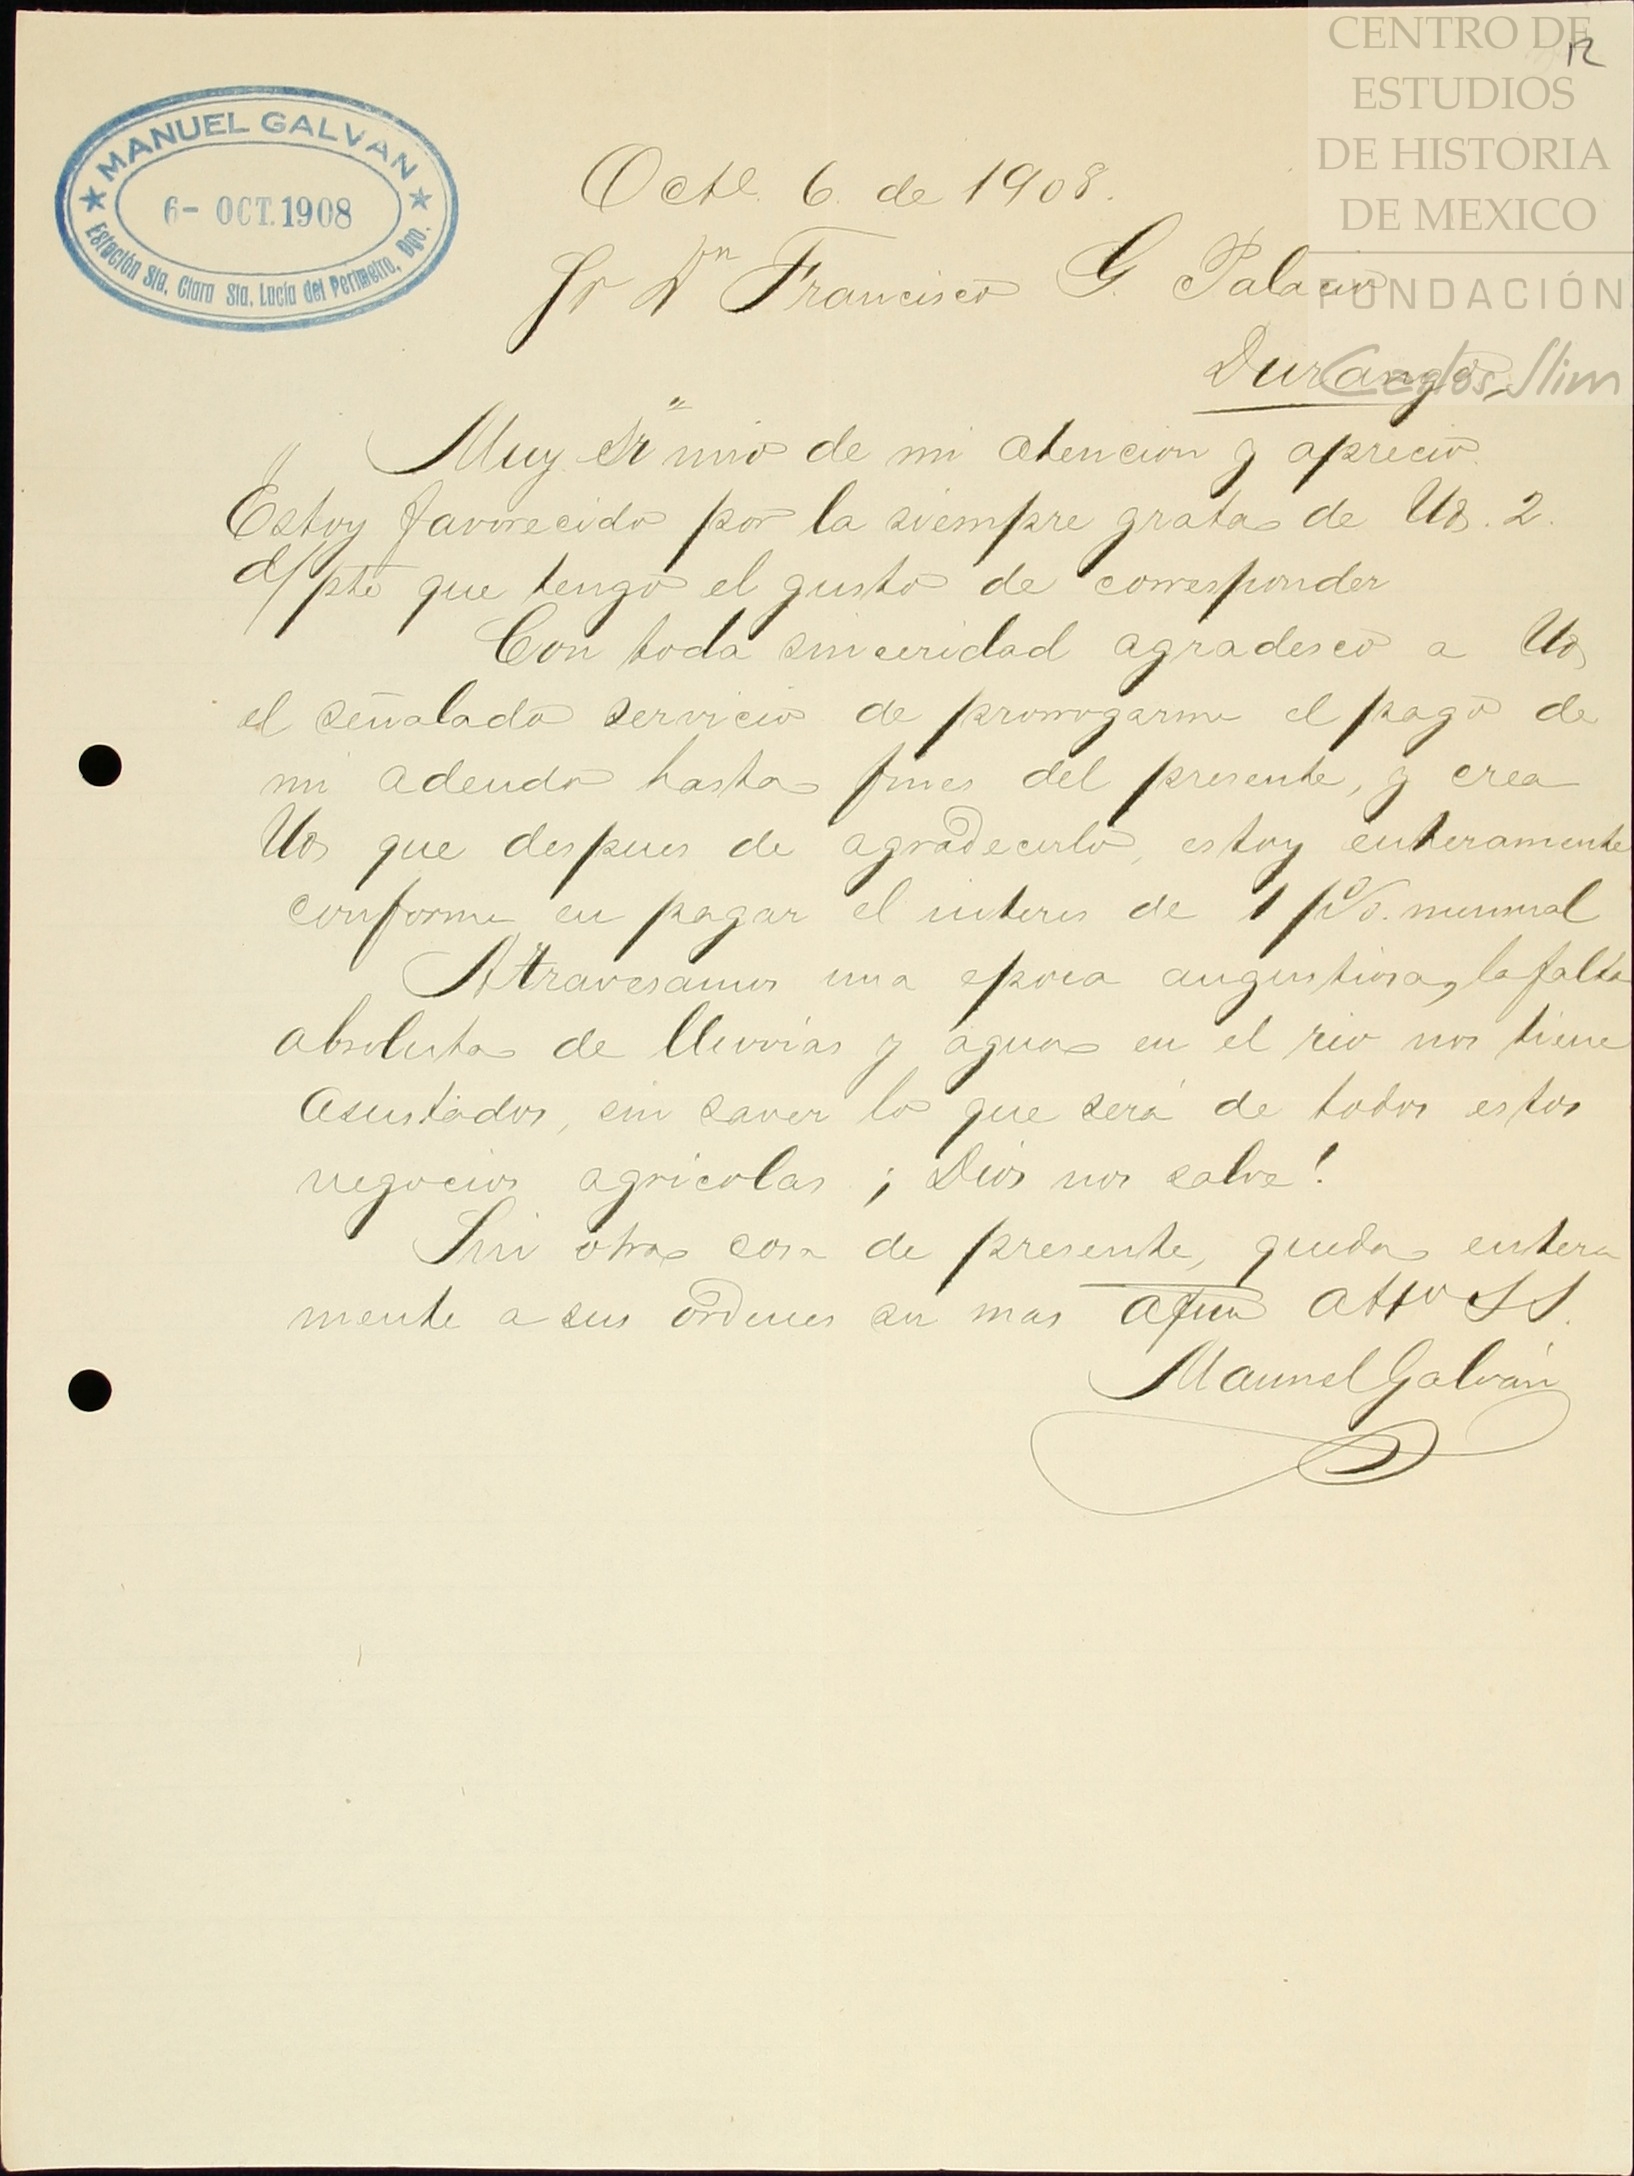 CENTRO DE
ESTUDIOS
DE HISTORIA
DE MEXICO
FUNDACIÓN
Carlos Slim
12
MANUEL GALVAN
6- OCT. 1908
Estación Sta. Clara Sta. Lucía del Perimetro, Dgo.
Octe. 6. de 1908.
Sr Dn Francisco G. Palacio
Durango,
Muy Sr mio de mi atencion y aprecio.
Estoy favorecido por la siempre grata de Ud. 2.
d/ pte que tengo el gusto de corresponder
Con toda sinceridad agradesco a Ud,
el señalado servicio de prorrogarme el pago de
mi adeudo hasta fines del presente, y crea
Ud, que despues de agradecerlo, estoy enteramente
conforme en pagar el interes de 1 p%. mensual
Atravesamos una epoca angustiosa, la falta
absoluta de lluvias y agua en el rio nos tiene
asustados, sin saver lo que será de todos estos
negocios agrícolas ¡Dios nos salve!
Sin otra cosa de presente, queda entera
mente a sus ordenes su mas afmo atto S S.
Manuel Galván